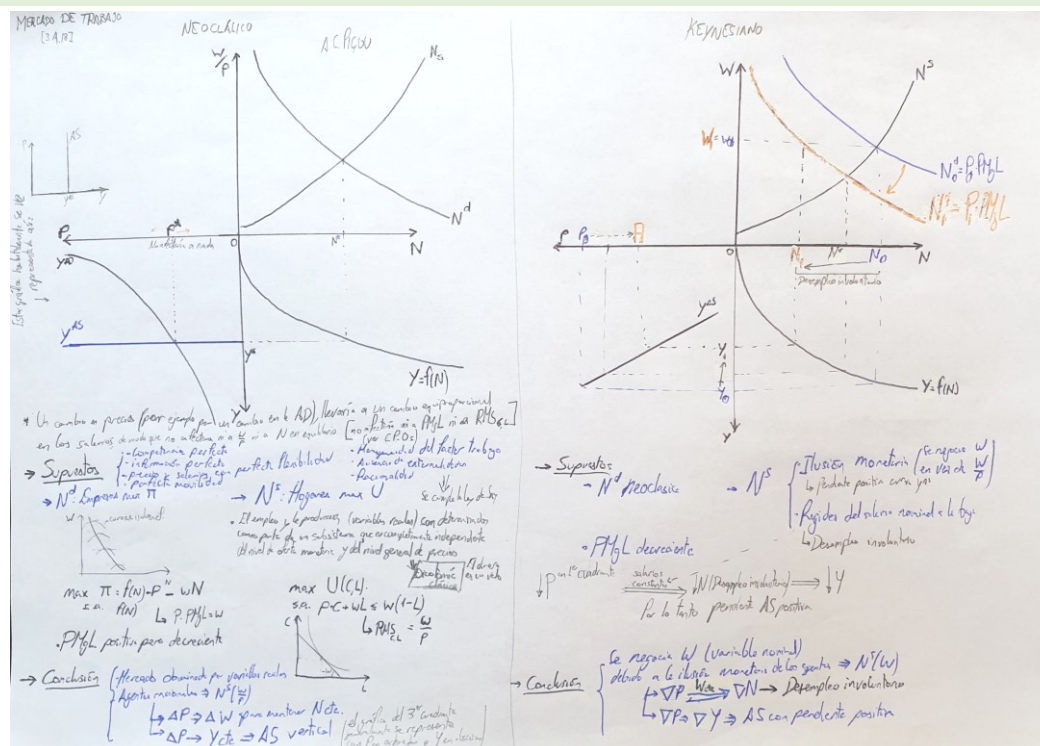 MERCADO DE TRABAJO
[3.4, 18]
NEOCLÁSICO
A C PIGOU
W/P
Ns
Nd
P
AS
Y
Esta gráfica habitualmente se
representa así
P
P*
No afectaría a nada
0
N*
N
YAD
YAS
Y*
Y
Y=f(N)
* Un cambio en precios (por ejemplo por un cambio en la AD), llevaría a un cambio equiproporcional
en los salarios de modo que no afectaría ni a W/P ni a N en equilibrio [no afectaría ni a PMgL ni a RMS CL]
(ver C.P.Os)
→ Supuestos
- Competencia perfecta
- información perfecta
- precios y salarios con perfecta flexibilidad
- perfecta movilidad
- Homogeneidad del factor trabajo
- Ausencia de externalidades
- Racionalidad
↳ Se cumple la ley de Say
→ Nd: Empresas max π
→ Ns: Hogares max U
• El empleo y la producción (variables reales) son determinados
como parte de un subsistema que es completamente independiente
del nivel de oferta monetaria y del nivel general de precios
Dicotomía clásica
El dinero es un velo
W
curvas isobeneficio
N
max π = f(N)·P - wN
s.a. f(N)
↳ P·PMgL=w
• PMgL positiva pero decreciente
max U(C,L)
s.a. P·C + wL ≤ W(1-L)
↳ RMS CL = W/P
C
L
→ Conclusión
- Mercado dominado por variables reales
- Agentes racionales ⇒ Ns(W/P)
↳ ΔP ⇒ ΔW para mantener N cte.
↳ ΔP ⇒ Y cte ⇒ AS vertical
el gráfico del 3er cuadrante
KEYNESIANO
W
NS
W1 = W0
N0d = P0·PMgL
N1d = P1·PMgL
P
P0
P1
0
N1
N*
N0
N
Desempleo involuntario
YAS
Y1
Y0
Y=f(N)
Y
→ Supuestos
→ Nd neoclásica
→ NS
- Ilusión monetaria (se negocia W en vez de W/P)
↳ pendiente positiva curva
- Rigidez del salario nominal a la baja
↳ Desempleo involuntario
• PMgL decreciente
↓P en 1er cuadrante
salarios constantes
↓N (Desempleo involuntario) ⇒ ↓Y
Por lo tanto pendiente AS positiva
→ Conclusión
Se negocia W (variable nominal)
debido a la ilusión monetaria de los agentes ⇒ NS(W)
↳ ∇P Wcte ⇒ ∇N → Desempleo involuntario
↳ ∇P ⇒ ∇Y ⇒ AS con pendiente positiva